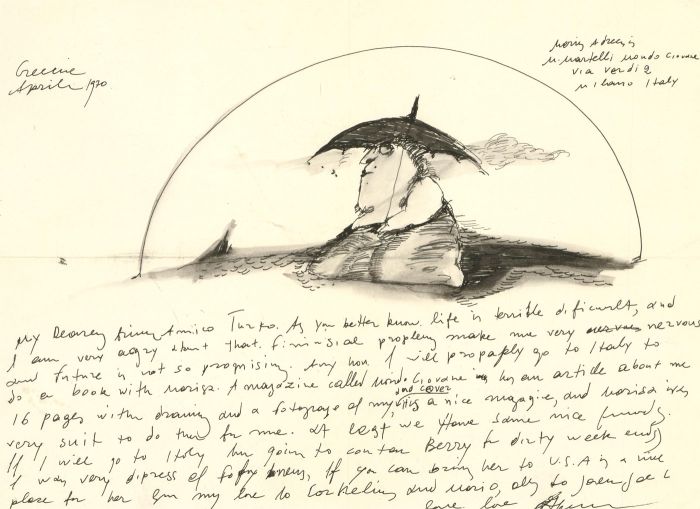 Greece
April 1970
Moris Adres is
M. Martelli Mondo Giovane
via Verdi 2
Milano Italy
My Dearey Amico Turko. As you better know life is terrible dificult, and
I am very agry about that. finansial proplem make me very nervous
and future is not so promising. Any how I will propaply go to Italy to
do a book with Morisa. A magazine called Mondo Giovane an article about me
and cover
16 pages with drawing and a fotograf of my a nice magazie, and Morisa is
very suit to do that for me. At leqt we Have some nice friends.
If I will go to Italy going to Berry for dirty week ends
I was very dipress of, If you can bring her to U.S.A is a nice
place for her my love to Cornelius and Mario, to
love love